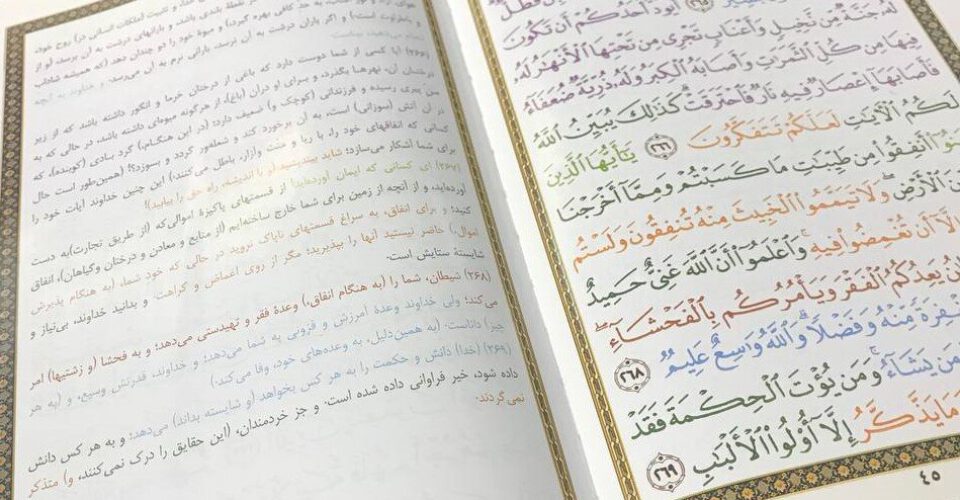 فَطَلٌّ
بَصِيرٌ ٢٦٥ أَيَوَدُّ أَحَدُكُمْ أَن تَكُونَ
لَهُۥ جَنَّةٌ مِّن نَّخِيلٍ وَأَعْنَابٍ تَجْرِى مِن تَحْتِهَا ٱلْأَنْهَٰرُ لَهُۥ
فِيهَا مِن كُلِّ ٱلثَّمَرَٰتِ وَأَصَابَهُ ٱلْكِبَرُ وَلَهُۥ ذُرِّيَّةٌ ضُعَفَآءُ
فَأَصَابَهَآ إِعْصَارٌ فِيهِ نَارٌ فَٱحْتَرَقَتْ ۗ كَذَٰلِكَ يُبَيِّنُ ٱللَّهُ
لَكُمُ ٱلْءَايَٰتِ لَعَلَّكُمْ تَتَفَكَّرُونَ ٢٦٦ يَٰٓأَيُّهَا ٱلَّذِينَ
أَنفِقُوا۟ مِن طَيِّبَٰتِ مَا كَسَبْتُمْ وَمِمَّآ أَخْرَجْنَا
ٱلْأَرْضِ ۖ وَلَا تَيَمَّمُوا۟ ٱلْخَبِيثَ مِنْهُ تُنفِقُونَ وَلَسْتُم
إِلَّآ أَن تُغْمِضُوا۟ فِيهِ ۚ وَٱعْلَمُوٓا۟ أَنَّ ٱللَّهَ غَنِىٌّ حَمِيدٌ
يَعِدُكُمُ ٱلْفَقْرَ وَيَأْمُرُكُم بِٱلْفَحْشَآءِ ۖ
مِّنْهُ وَفَضْلًا ۗ وَٱللَّهُ وَٰسِعٌ عَلِيمٌ ٢٦٨
مَن يَشَآءُ ۚ وَمَن يُؤْتَ ٱلْحِكْمَةَ فَقَدْ
وَمَا يَذَّكَّرُ إِلَّآ أُو۟لُوا۟ ٱلْأَلْبَٰبِ ٢٦٩
٤٥
و تثبیت (ملکات انسانی در) روح خود،
نقطهٔ بلندی باشد، و بارانهای درشت به آن برسد، (و از
به حد کافی بهره گیرد،) و میوهٔ خود را دو چندان دهد (که همیشه شاداب
و باطراوت است.) و اگر باران درشت به آن نرسد، بارانی نرم به آن می‌رسد. و خداوند به آنچه
(۲۶۶) آیا کسی از شما دوست دارد که باغی از درختان خرما و انگور داشته باشد که از زیر
درختان آن، نهرها بگذرد، و برای او در آن (باغ)، از هرگونه میوه‌ای داشته باشد، در حالی که به
سن پیری رسیده و فرزندانی (کوچک و) ضعیف دارد؛ (در این هنگام،) گرد بادی (کوبنده)، که
در آن آتش (سوزانی) است، به آن برخورد کند و شعله‌ور گردد و بسوزد؟! (همین‌طور است حال
کسانی که انفاقهای خود را، با ریا و منت وآزار، باطل می‌کنند.) این چنین خداوند آیات خود را
برای شما آشکار می‌سازد؛ شاید بیندیشید (و با اندیشه، راه حق را بیابید)!
(۲۶۷) ای کسانی که ایمان آورده‌اید! از قسمتهای پاکیزهٔ اموالی‌که (از طریق تجارت)به دست
آورده‌اید، و از آنچه از زمین برای شما خارج ساخته‌ایم (از منابع و معادن و درختان وگیاهان)، انفاق
کنید؛ و برای انفاق، به سراغ قسمتهای ناپاک نروید در حالی که خود شما، (به هنگام پذیرش
اموال،) حاضر نیستید آنها را بپذیرید؛ مگر از روی اغماض و کراهت. و بدانید خداوند، بی‌نیاز و
شایستهٔ ستایش است.
(۲۶۸) شیطان، شما را (به هنگام انفاق،) وعدهٔ فقر و تهیدستی می‌دهد؛ و به فحشا (و زشتیها) امر
می‌کند؛ ولی خداوند وعدهٔ آمرزش و فزونی به شما می‌دهد؛ و خداوند، قدرتش وسیع، و (به هر
چیز) داناست. (به همین‌دلیل، به وعده‌های خود، وفا می‌کند.)
(۲۶۹) (خدا) دانش و حکمت را به هر کس بخواهد (و شایسته بداند) می‌دهد؛ و به هر کس دانش
داده شود، خیر فراوانی داده شده است. و جز خردمندان، (این حقایق را درک نمی‌کنند، و) متذکر
نمی‌گردند.